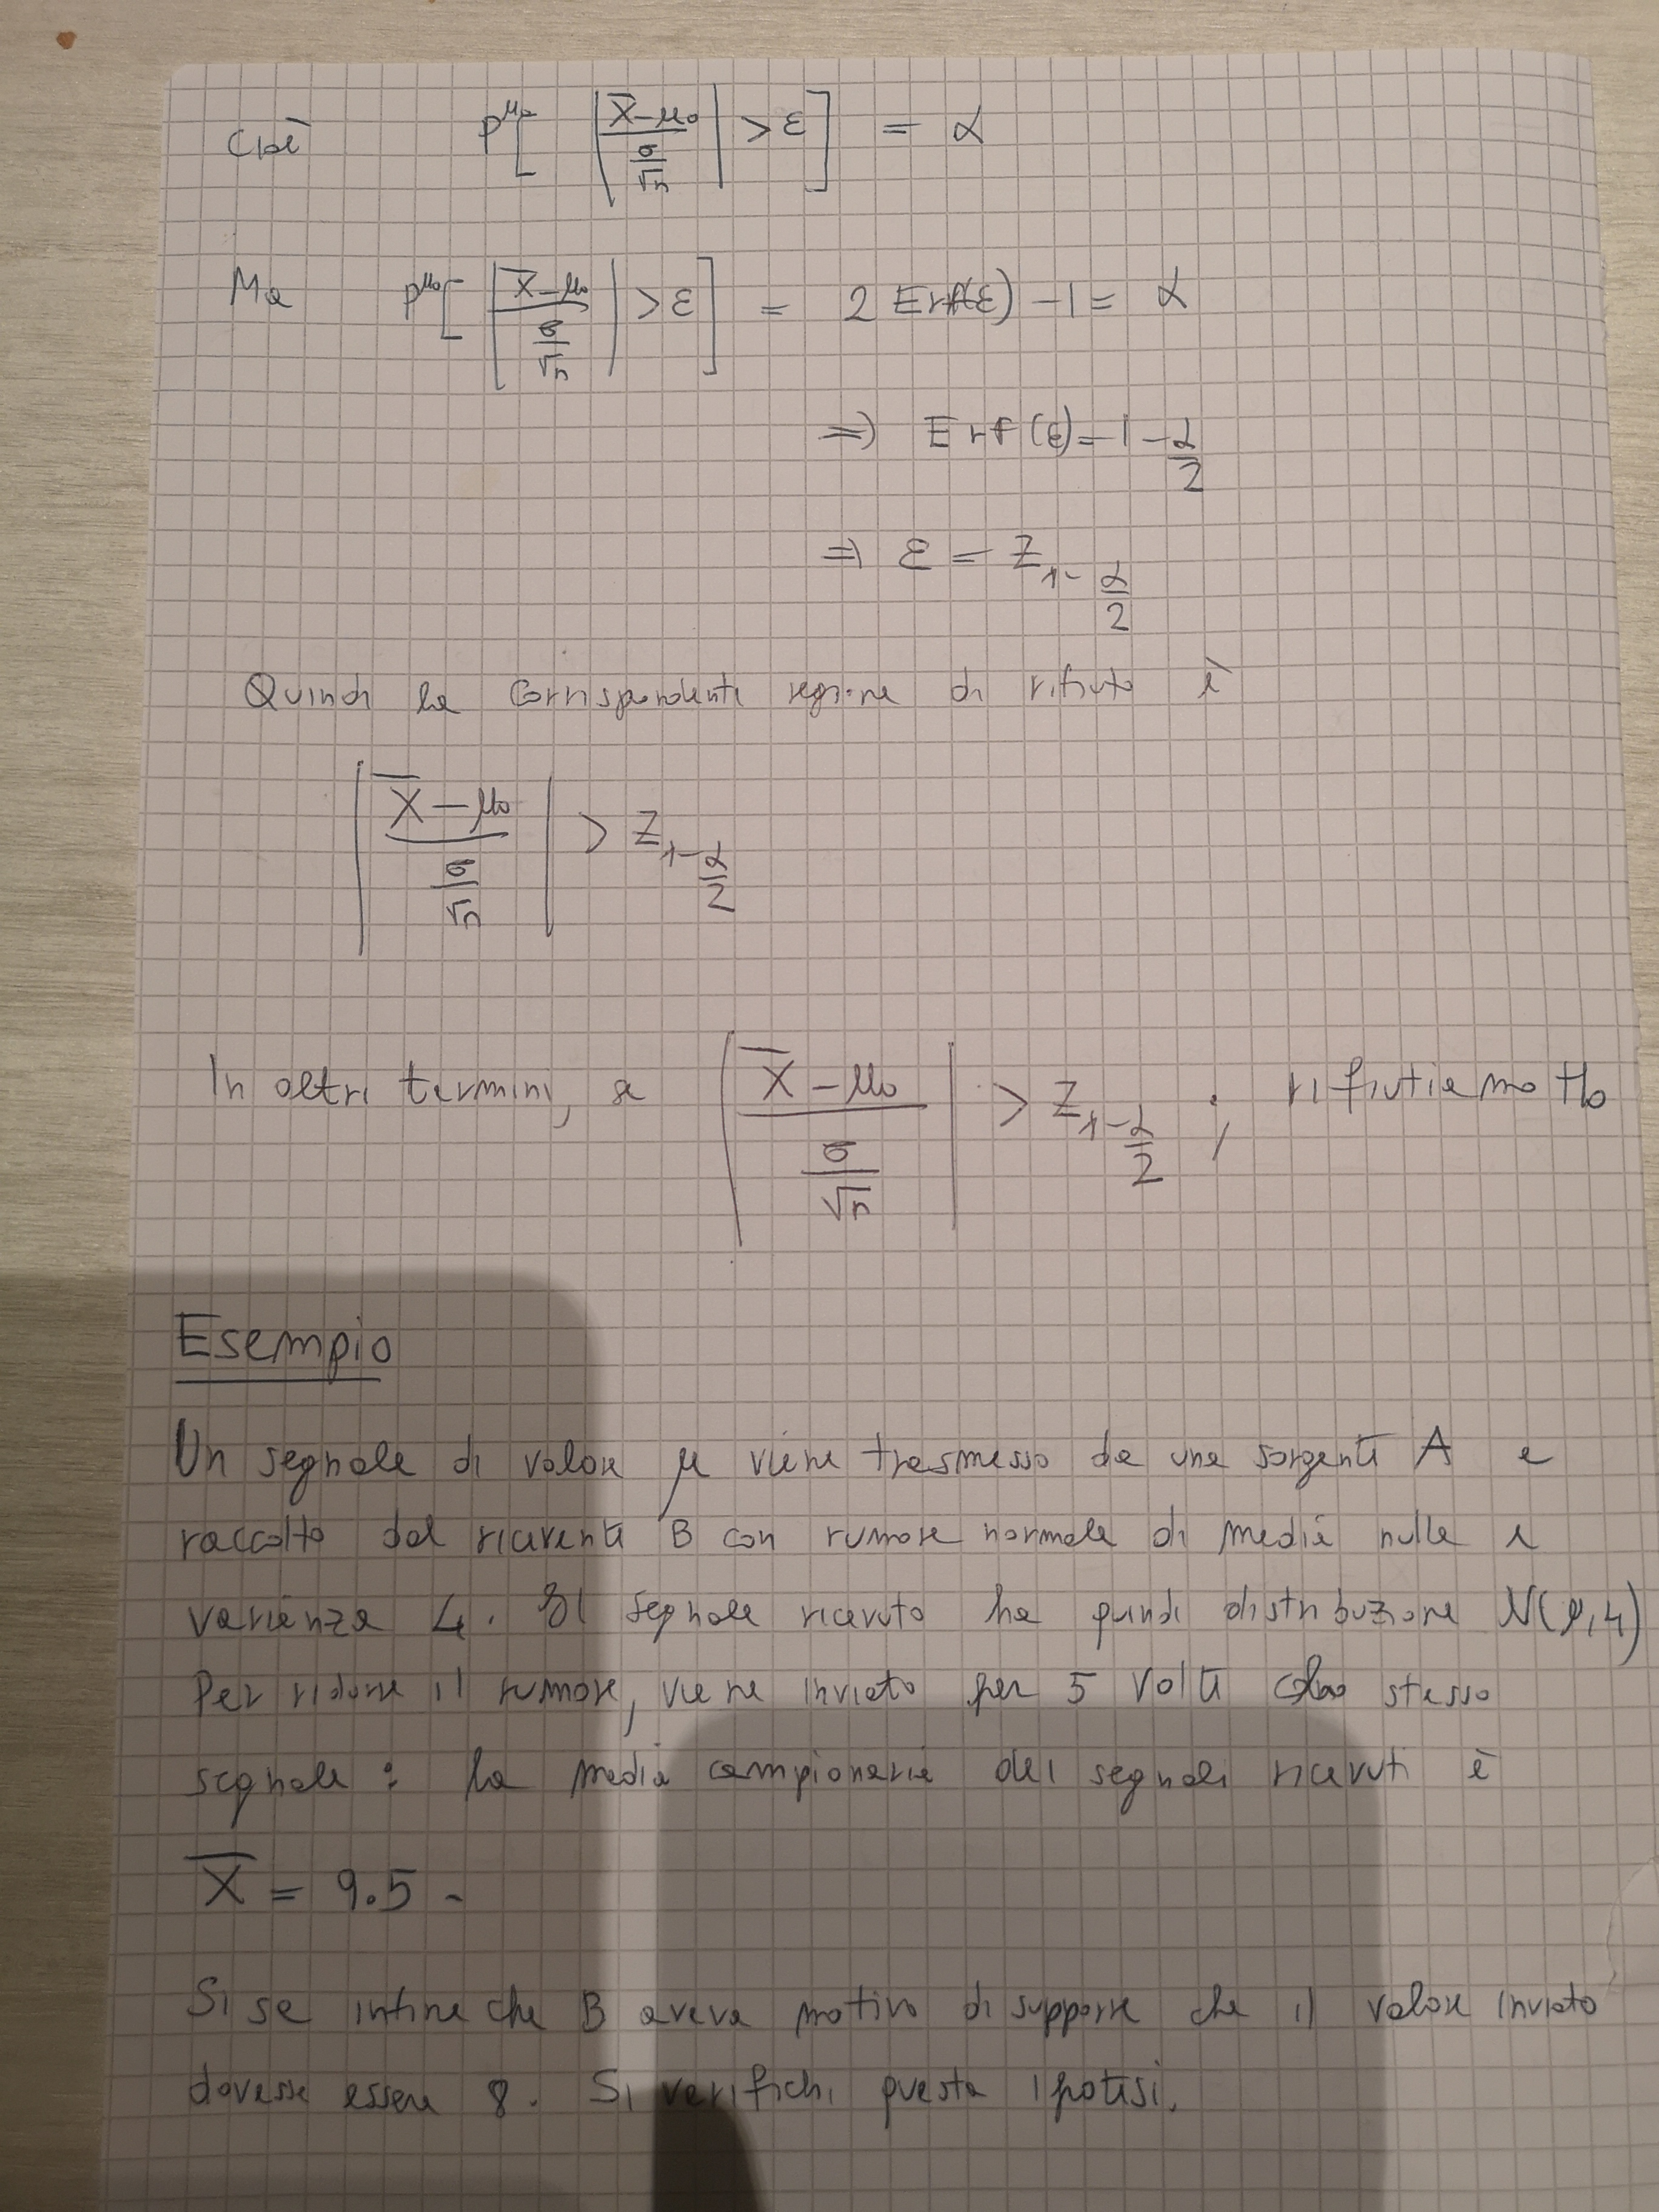 Cioè P^μ0[ |(X̄-μ0)/(σ/√n)| > ε ] = α
Ma P^μ0[ |(X̄-μ0)/(σ/√n)| > ε ] = 2 Erf(ε) -1 = α
=> Erf(ε) = 1 - α/2
=> ε = Z_{1-α/2}
Quindi la corrispondente regione di rifiuto è
|(X̄-μ0)/(σ/√n)| > Z_{1-α/2}
In altri termini, se |(X̄-μ0)/(σ/√n)| > Z_{1-α/2} ; rifiutiamo H0
Esempio
Un segnale di valore μ viene trasmesso da una sorgente A e
raccolto dal ricevente B con rumore normale di media nulla e
varianza 4. Il segnale ricevuto ha quindi distribuzione N(μ,4)
Per ridurre il rumore, viene inviato per 5 volte lo stesso
segnale : la media campionaria dei segnali ricevuti è
X̄ = 9.5 -
Si se infine che B aveva motivo di supporre che il valore inviato
dovesse essere 8. Si verifichi questa ipotesi.